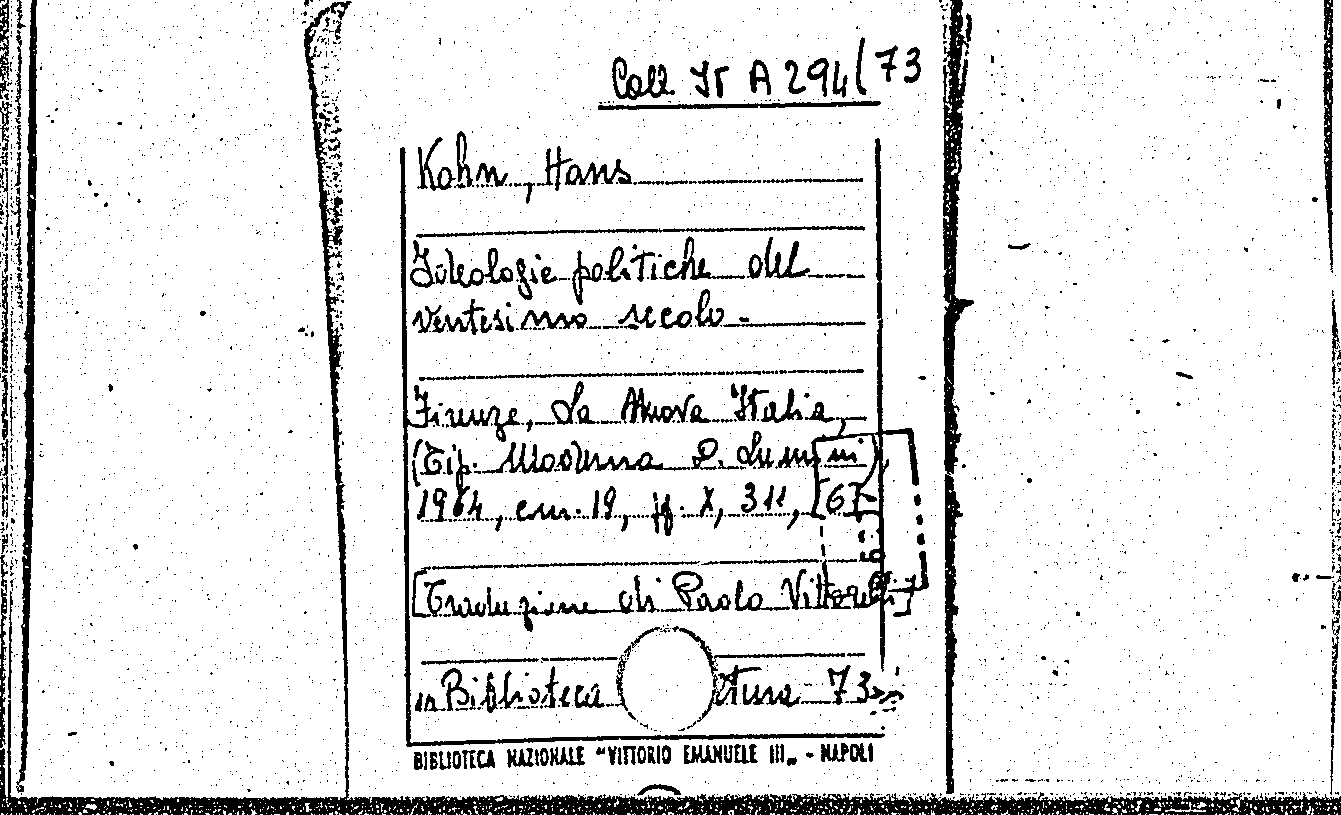 Coll. It A 294/73
Kohn, Hans
Ideologie politiche del
ventesimo secolo.
Firenze, La Nuova Italia,
(Tip. Moderna P. Lumini),
1964, cm. 19, pp. X, 311, [67
[Traduzione di Paolo Vittorelli]
Biblioteca tura 73
BIBLIOTECA NAZIONALE "VITTORIO EMANUELE III„ - NAPOLI